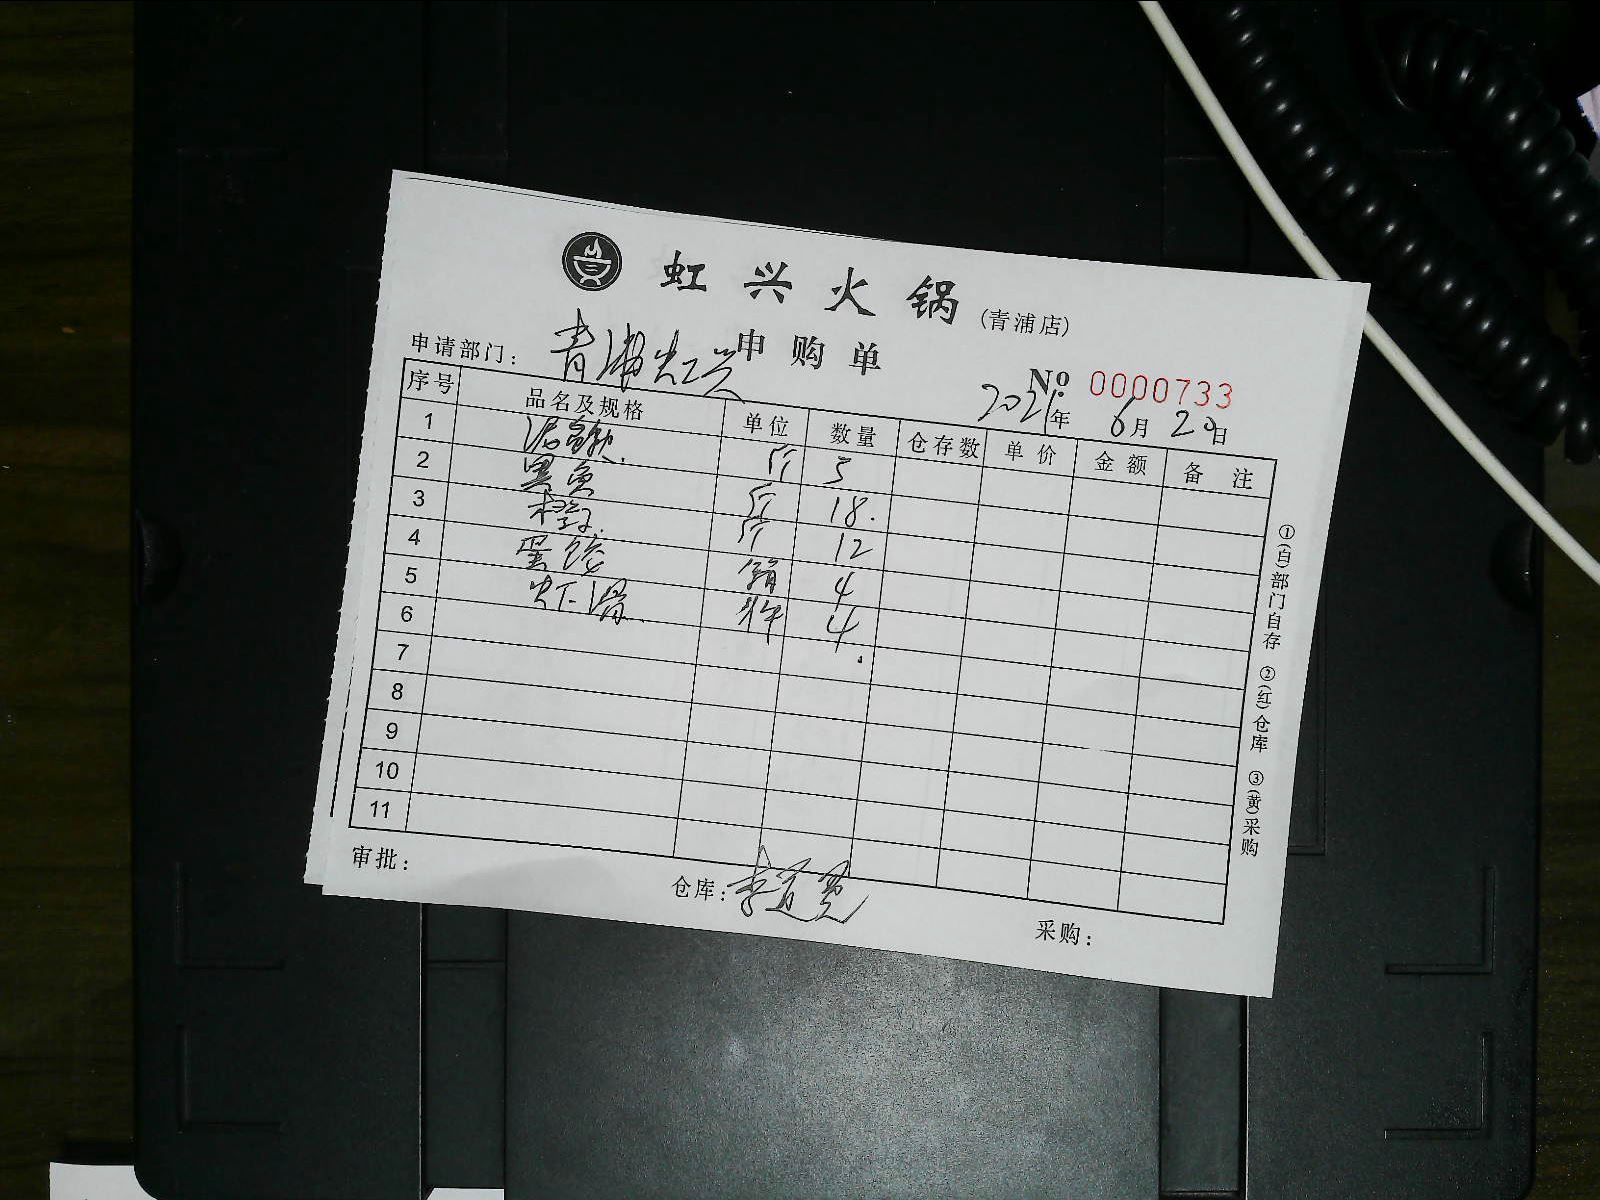 虹兴火锅(青浦店)
申购单
申请部门：青浦虹兴
No 0000733
2021年 6月 20日
序号 品名及规格 单位 数量 仓存数 单价 金额 备注
1 泥鳅 斤 5
2 黑鱼 斤 18.
3 橙子. 斤 12
4 蛋饺 箱 4
5 虾滑. 件 4.
6
7
8
9
10
11
审批：
仓库：李道
采购：
①(白)部门自存 ②(红)仓库 ③(黄)采购